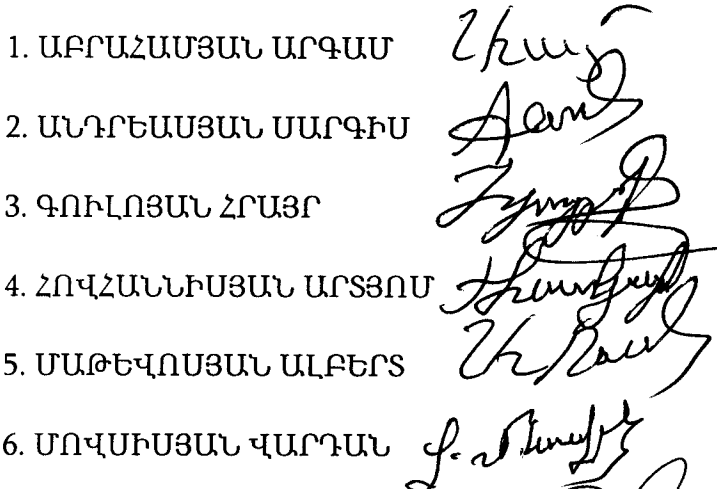 1. ԱԲՐԱՀԱՄՅԱՆ ԱՐԳԱՄ
2. ԱՆԴՐԵԱՍՅԱՆ ՍԱՐԳԻՍ
3. ԳՈՒԼՈՅԱՆ ՀՐԱՅՐ
4. ՀՈՎՀԱՆՆԻՍՅԱՆ ԱՐՏՅՈՄ
5. ՄԱԹԵՎՈՍՅԱՆ ԱԼԲԵՐՏ
6. ՄՈՎՍԻՍՅԱՆ ՎԱՐԴԱՆ